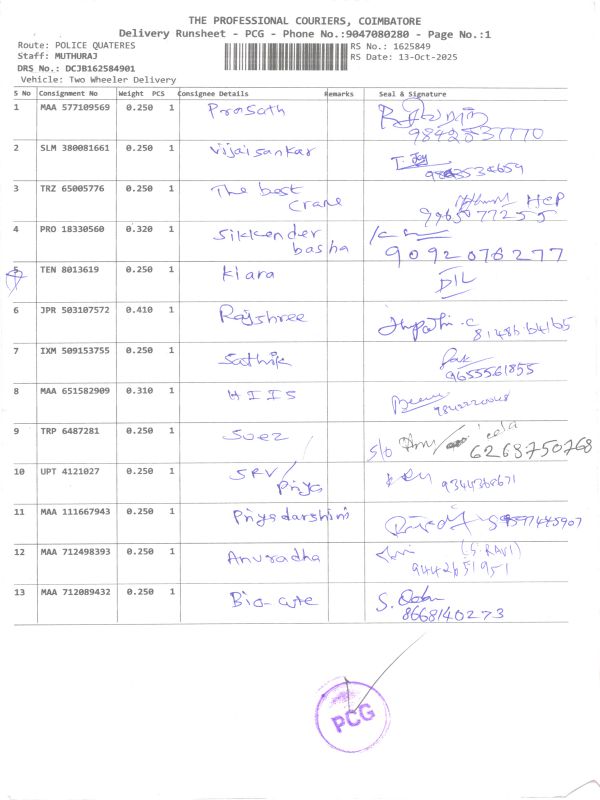 THE PROFESSIONAL COURIERS, COIMBATORE
Delivery Runsheet - PCG - Phone No.:9047080280 - Page No.:1
Route: POLICE QUATERES RS No.: 1625849
Staff: MUTHURAJ RS Date: 13-Oct-2025
DRS No.: DCJB162584901
Vehicle: Two Wheeler Delivery
S No Consignment No Weight PCS Consignee Details Remarks Seal & Signature
1 MAA 577109569 0.250 1 Prasath
9842537770
2 SLM 380081661 0.250 1 Vijaisankar
3 TRZ 65005776 0.250 1 The best HCP
crane 9965077255
4 PRO 18330560 0.320 1 Sikkender
basha 9092076277
5 TEN 8013619 0.250 1 Klara DIL
6 JPR 503107572 0.410 1 Rajshree
7 IXM 509153755 0.250 1 Sathik
9655561855
8 MAA 651582909 0.310 1 HIIS
9 TRP 6487281 0.250 1 Suez S/o
6268750768
10 UPT 4121027 0.250 1 SRV/
Priya
11 MAA 111667943 0.250 1 Priyadarshini
12 MAA 712498393 0.250 1 Anuradha (S.RAVI)
9442651951
13 MAA 712089432 0.250 1 Bio-cute S.
8668140273
PCG